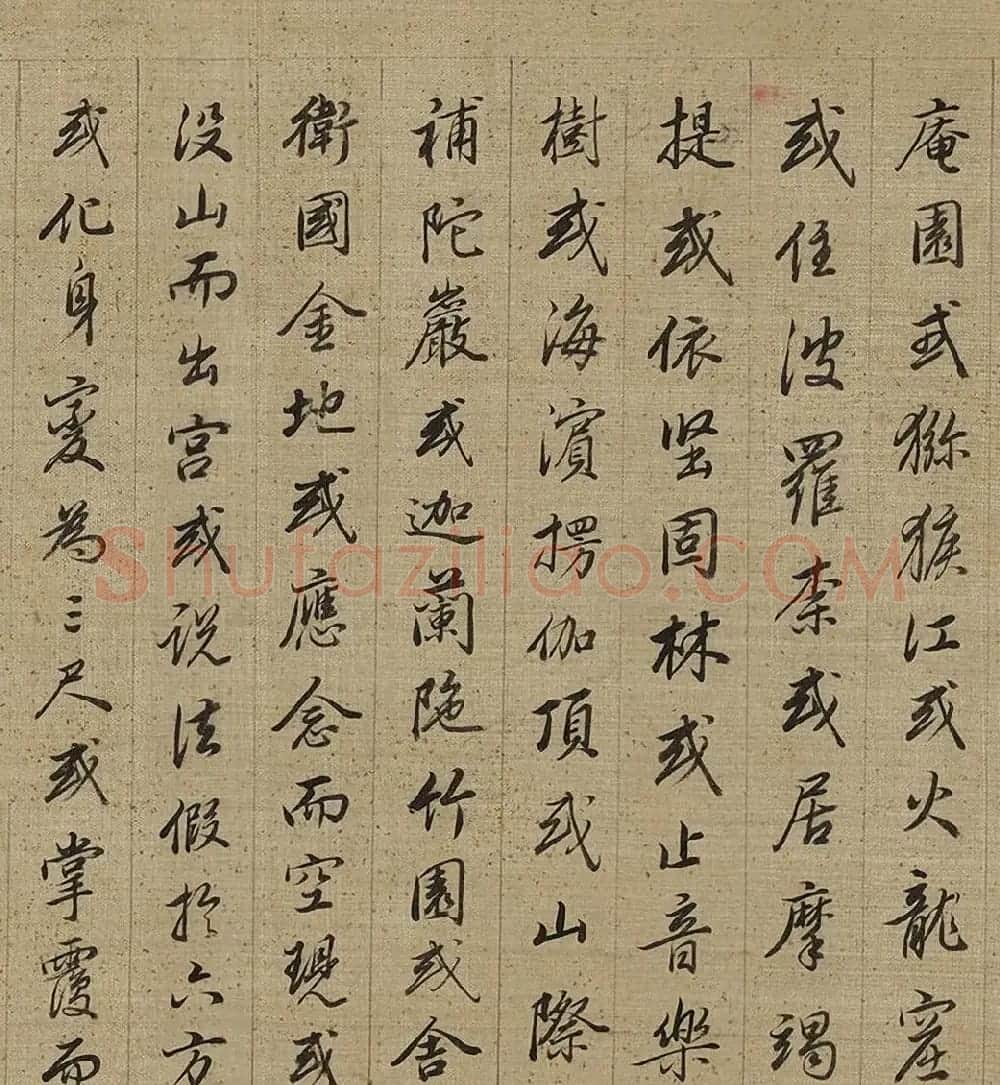 庵園或猕猴江或火龍窟
或住波羅柰或居摩竭
提或依坚固林或止音樂
樹或海濱楞伽頂或山際
補陀巖或迦蘭陁竹園或舍
衛國金地或應念而空現或
没山而出宫或説法假於六方
或化身變為三尺或掌覆而
Shufaziliao.COM